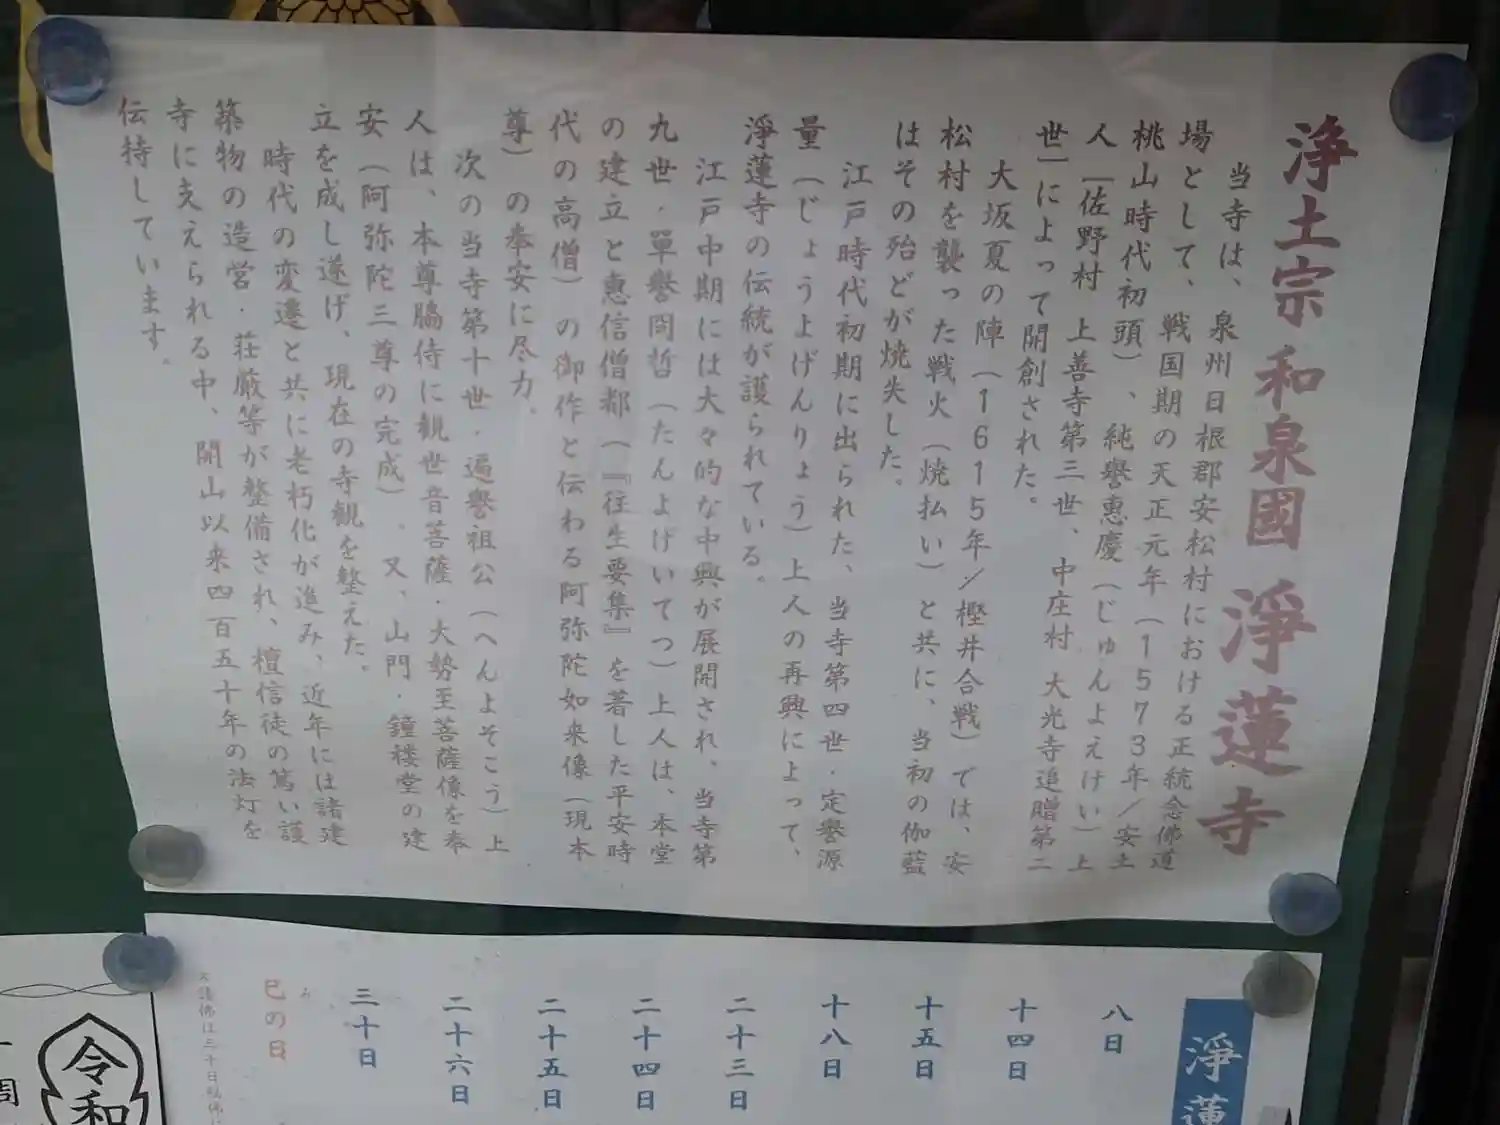 浄土宗 和泉國 淨蓮寺
当寺は、泉州日根郡安松村における正統念佛道
場として、戦国期の天正元年（1573年／安土
桃山時代初頭）、純譽惠慶（じゅんよえけい）上
人［佐野村 上善寺第三世、中庄村 大光寺追贈第二
世］によって開創された。
大坂夏の陣（1615年／樫井合戦）では、安
松村を襲った戦火（焼払い）と共に、当初の伽藍
はその殆どが焼失した。
江戸時代初期に出られた、当寺第四世・定譽源
量（じょうよげんりょう）上人の再興によって、
淨蓮寺の伝統が護られている。
江戸中期には大々的な中興が展開され、当寺第
九世・單譽冏哲（たんよげいてつ）上人は、本堂
の建立と惠信僧都（『往生要集』を著した平安時
代の高僧）の御作と伝わる阿弥陀如来像（現本
尊）の奉安に尽力。
次の当寺第十世・遍譽祖公（へんよそこう）上
人は、本尊脇侍に観世音菩薩・大勢至菩薩像を奉
安（阿弥陀三尊の完成）、又、山門・鐘楼堂の建
立を成し遂げ、現在の寺観を整えた。
時代の変遷と共に老朽化が進み、近年には諸建
築物の造営・荘厳等が整備され、檀信徒の篤い護
寺に支えられる中、開山以来四百五十年の法灯を
伝持しています。
淨蓮
八日
十四日
十五日
十八日
二十三日
二十四日
二十五日
二十六日
三十日
巳の日
み
令和